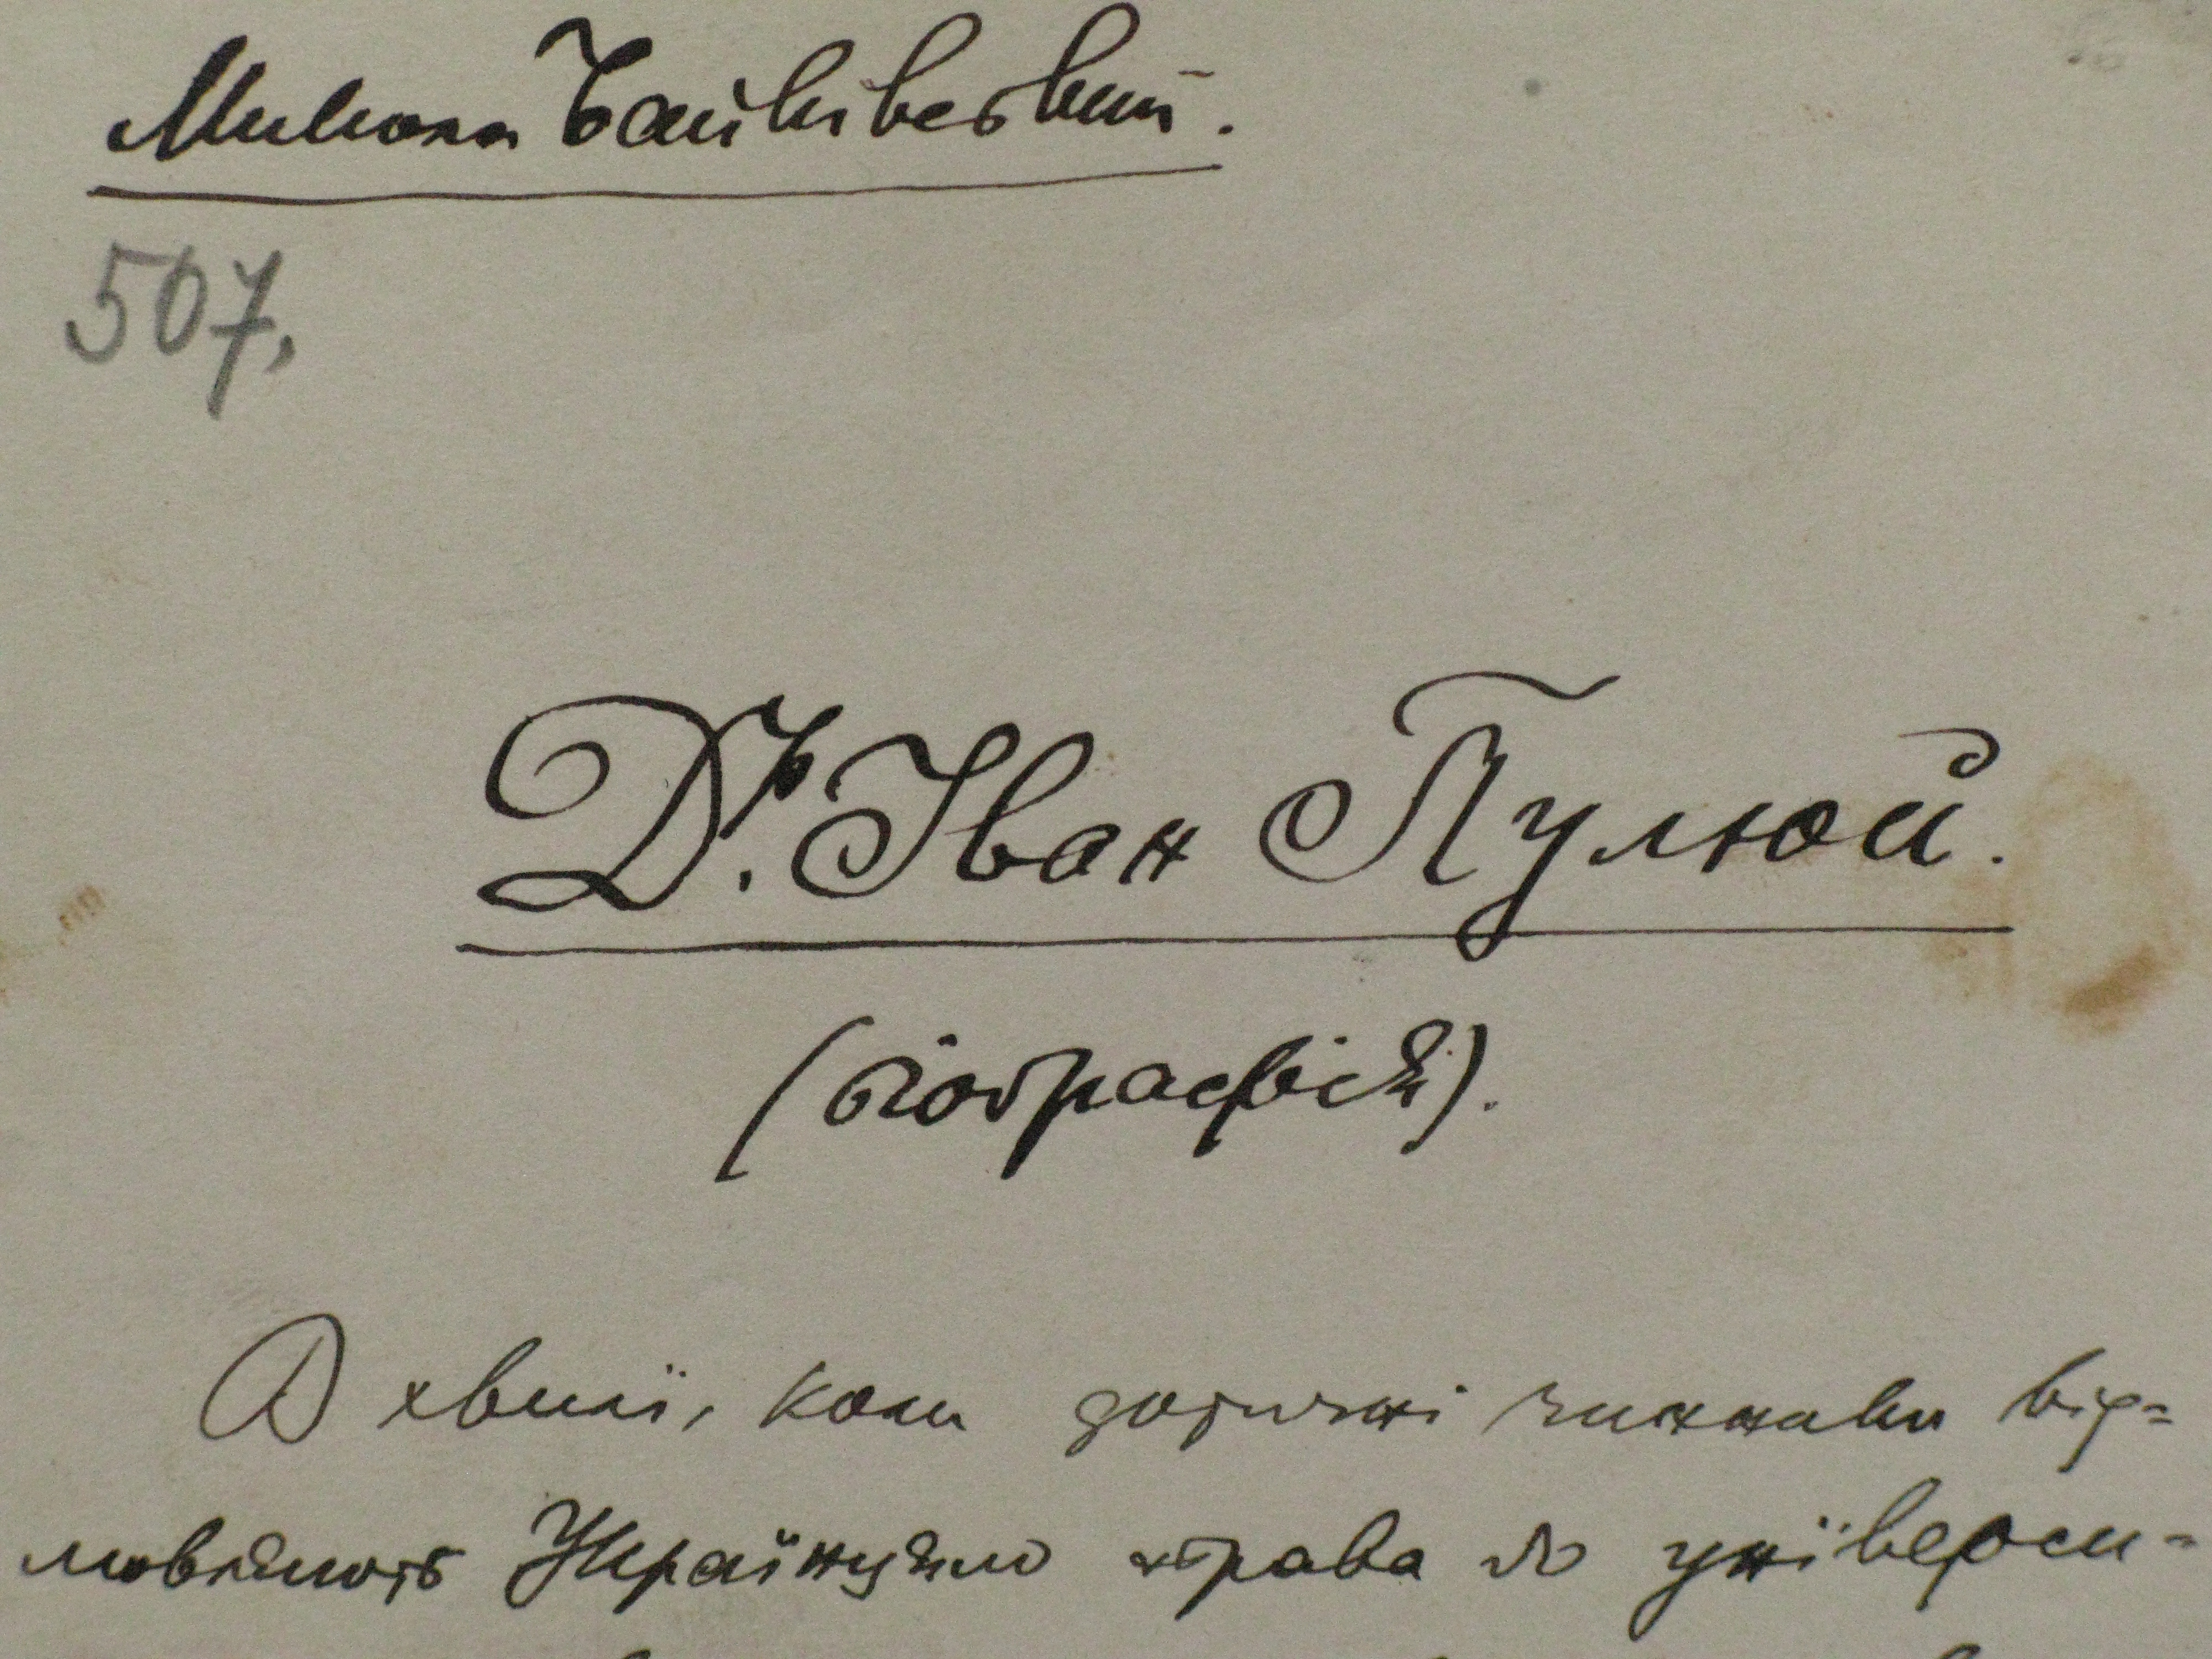 Микола Байківский.
507.
Dr. Іван Пулюй.
(біографія).
В хвилї, коли дотичнї чинники від-
мовляють Українцям права до унїверси-